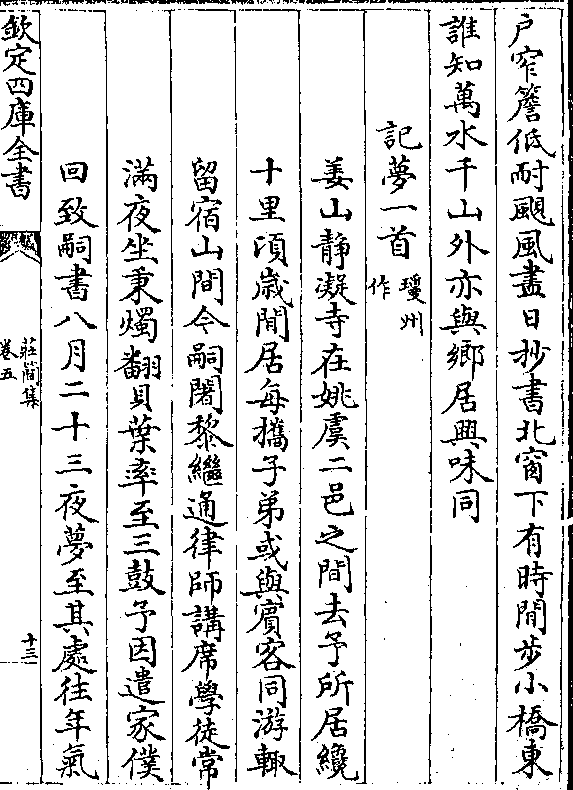 户窄簷低耐颶風盡日抄書北窗下有時閒步小橋東
誰知萬水千山外亦與鄉居興味同
記夢一首瓊州作
姜山靜凝寺在姚虞二邑之間去予所居纔
十里頃歲閒居每攜子弟或與賓客同游輙
留宿山間今嗣闍黎繼通律師講席學徒常
滿夜坐秉燭翻貝葉率至三鼓予因遣家僕
回致嗣書八月二十三夜夢至其處往年氣
欽定四庫全書
莊簡集
卷五
十三